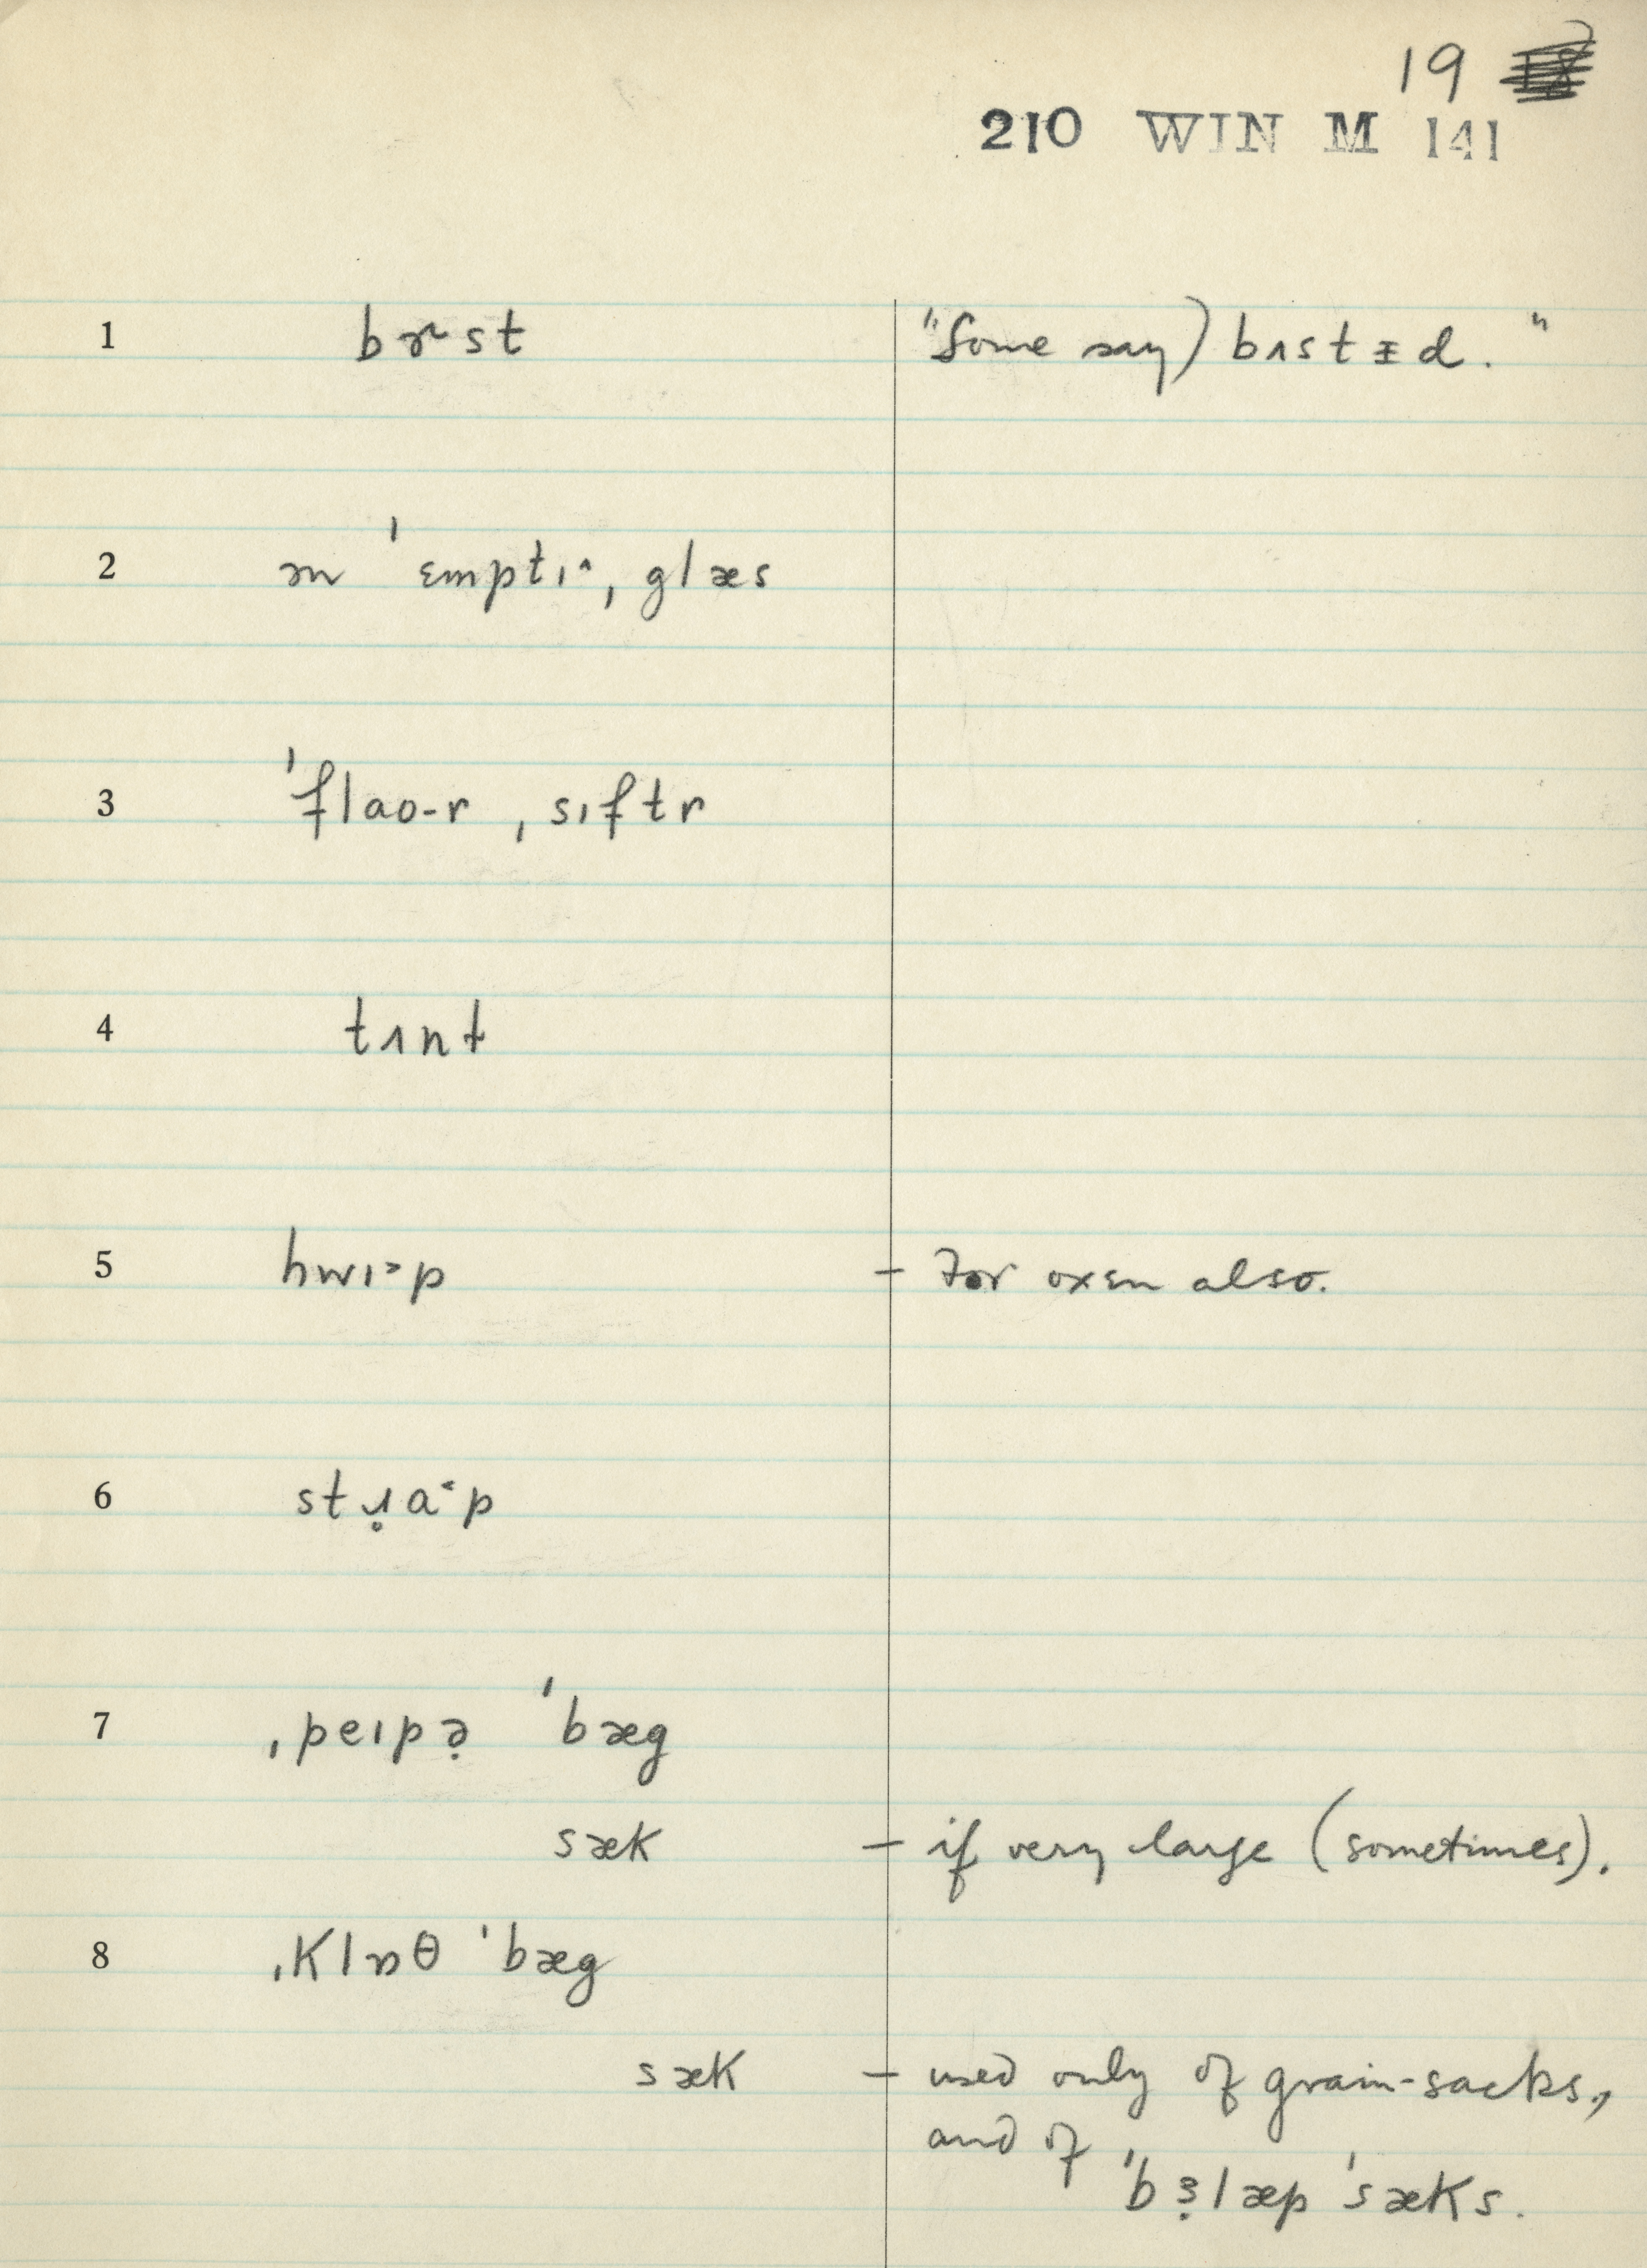 19
210 WIN M 141
1 bɚst "Some say) bʌstᵻd."
2 ən ˈɛmptɪ^, glæs
3 ˈflaʊ-r ˌsɪftr
4 tʌnt
5 hwɪ˃p – For oxen also.
6 stɹ̥a˂p
7 ˌpeɪpə̣ ˈbæg
sæk – if very large (sometimes).
8 ˌklɒθ ˈbæg
sæk – used only of grain-sacks,
and of
ˈbɜ̣læp ˈsæks.